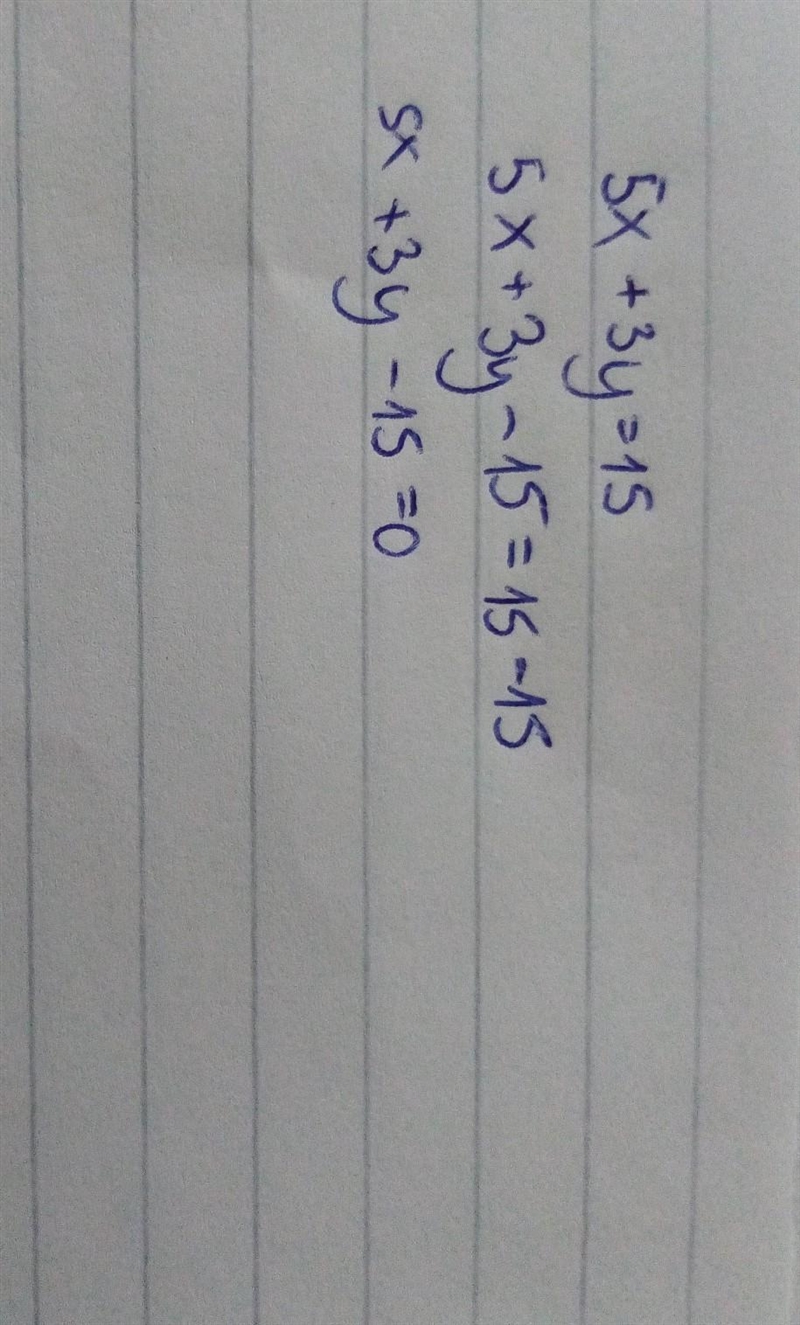 5x + 3y = 15
5x + 3y - 15 = 15 - 15
5x + 3y - 15 = 0